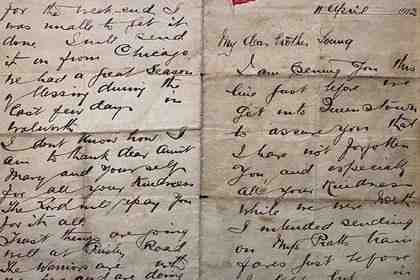 for the week-end I
was unable to get it
done. I will send
it on from Chicago
We had a great season
of blessing during the
last few days in
Walworth.
I don't know how I
am to thank dear Aunt
Mary and yourself
for all your kindness
The Lord will repay you
for it all.
Trust things are going
well at Paisley Road
The Warriors are with
are doing
11 April 1912
My dear Brother Young
I am penning you this
line just before we
get into Queenstown
to assure you that
I have not forgotten
you and especially
all your kindness
while we were North
I intended sending
on Miss Pratts train
fares just before